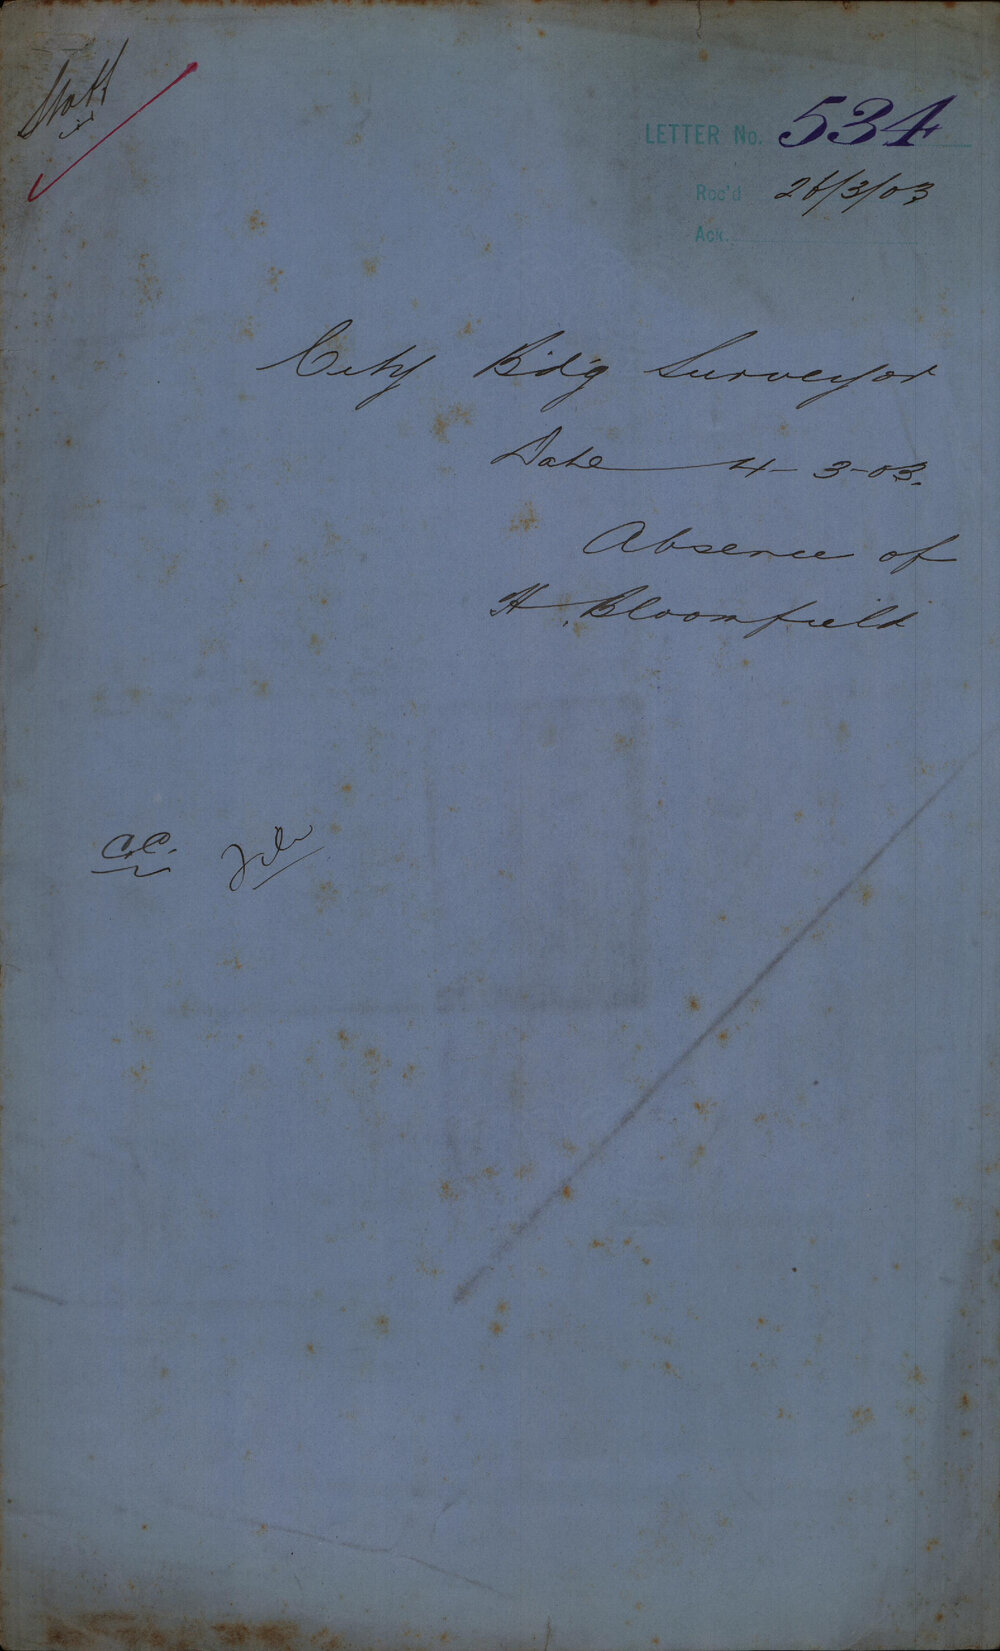 Staff
LETTER No. 534
Rec'd 26/3/03
Ack.
City Bd'g Surveyor
Date 4-3-03.
Absence of
H. Bloomfield
C.C. File